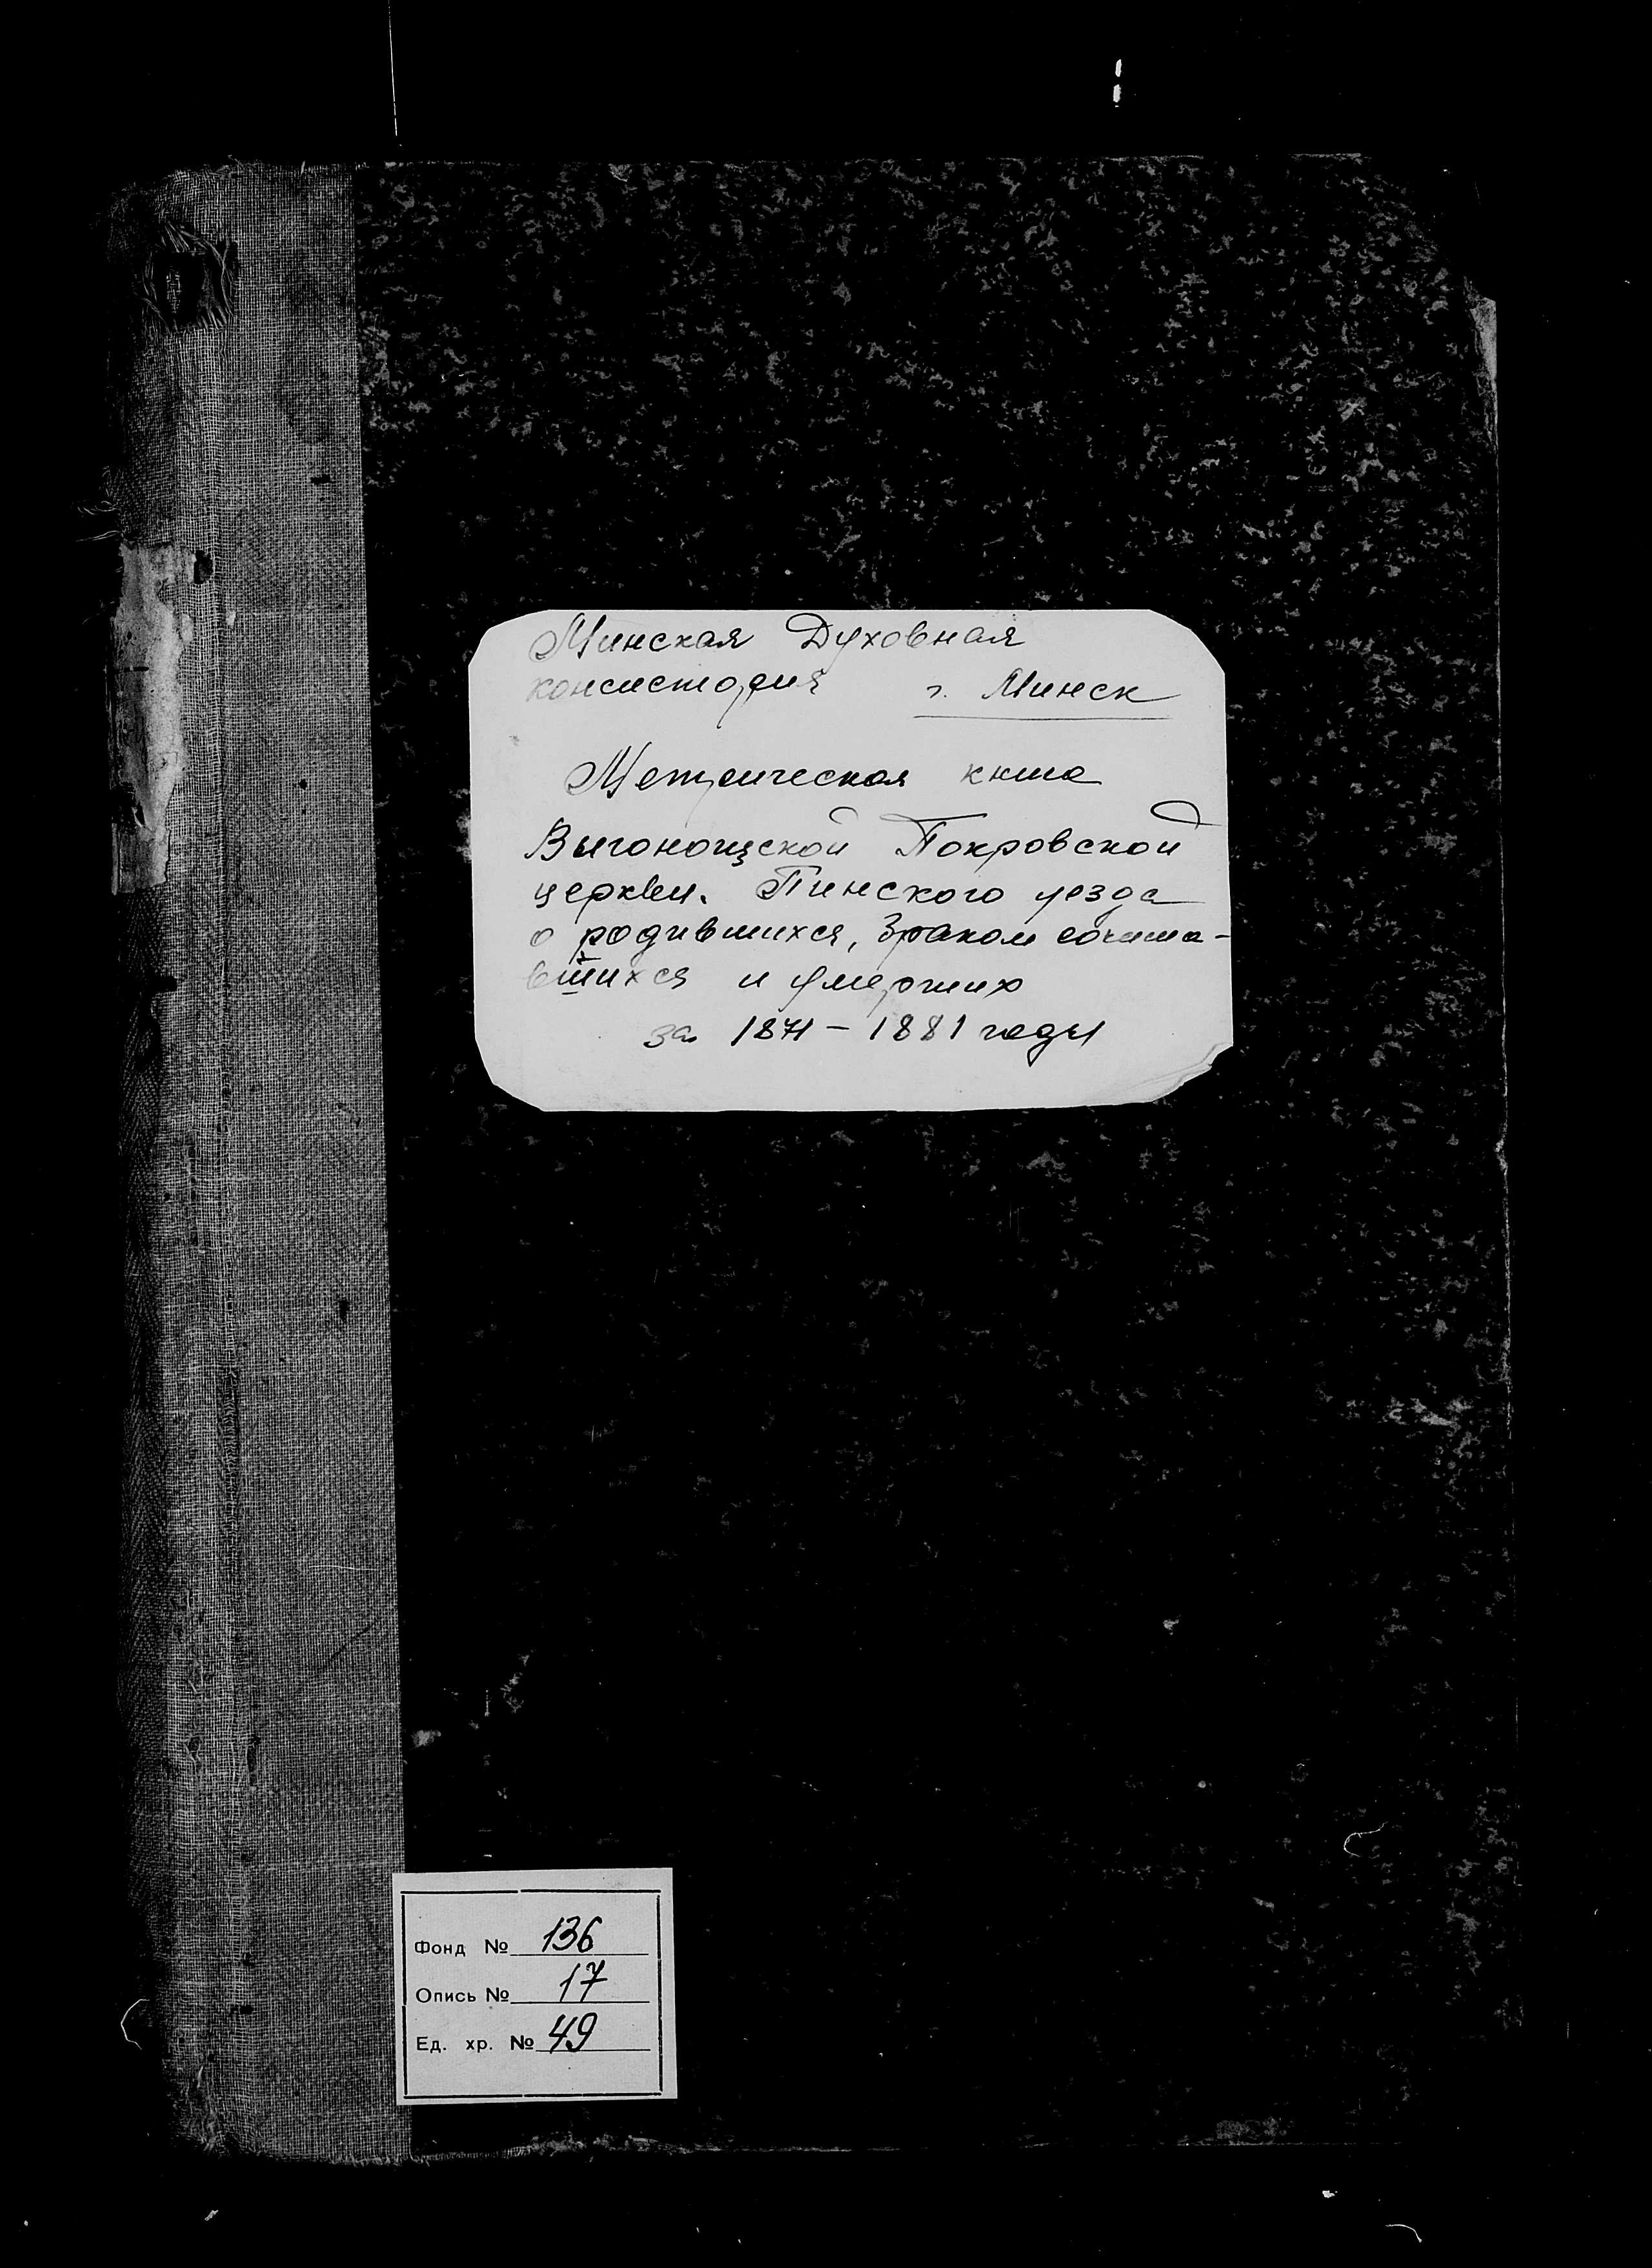 Минская Духовная
консистория г. Минск
Метрическая книга
Выгонощской Покровской
церкви. Пинского уезда
о родившихся, браком сочета-
вшихся и умерших
за 1871 – 1881 годы
Фонд № 136
Опись № 17
Ед. хр. № 49